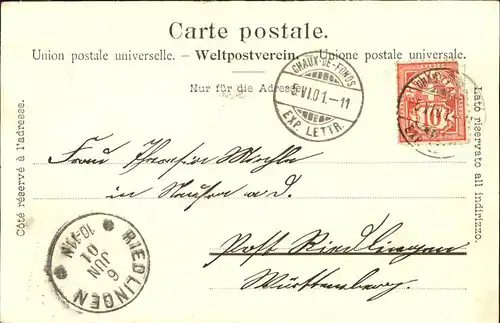 Carte postale.
Union postale universelle. – Weltpostverein. – Unione postale universale.
Nur für die Adresse
CHAUX-DE-FONDS
5. VI. 01. – 11
EXP. LETTR.
10
Côté réservé à l'adresse.
Lato riservato all indirizzo.
Frau
in a. d.
Post Riedlingen
Württemberg.
RIEDLINGEN
6
JUN
01
10-11N